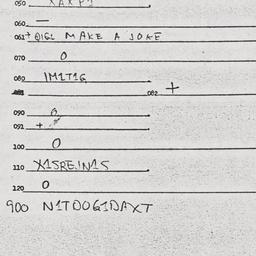 050 XAXPI
060 —
061 + QIGL MAKE A JOKE
070 O
080 IM1T1G
081 082 +
090
091 +
100 O
110 X1SREIN1S
120 O
900 N1TDOG1DAXT